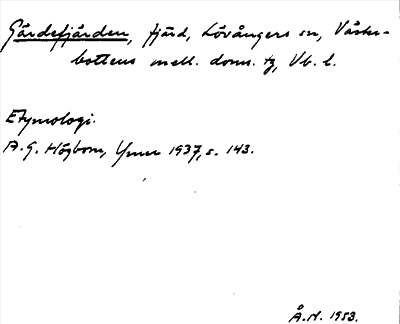 Gärdefjärden, fjärd, Lövångers sn, Väster-
bottens mell. doms. tg, Vb. l.
Etymologi.
A.G. Högbom, Ymer 1937, s. 143.
Å.N. 1953.